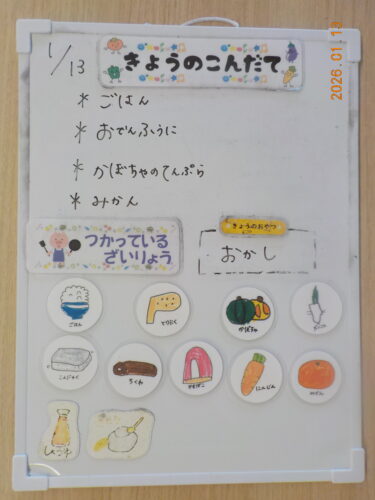 2026.01.13
きょうのこんだて
1/13
* ごはん
* おでんふうに
* かぼちゃのてんぷら
* みかん
つかっている
ざいりょう
きょうのおやつ
おかし
ごはん
とりにく
かぼちゃ
だいこん
こんにゃく
ちくわ
かまぼこ
にんじん
みかん
しょうゆ